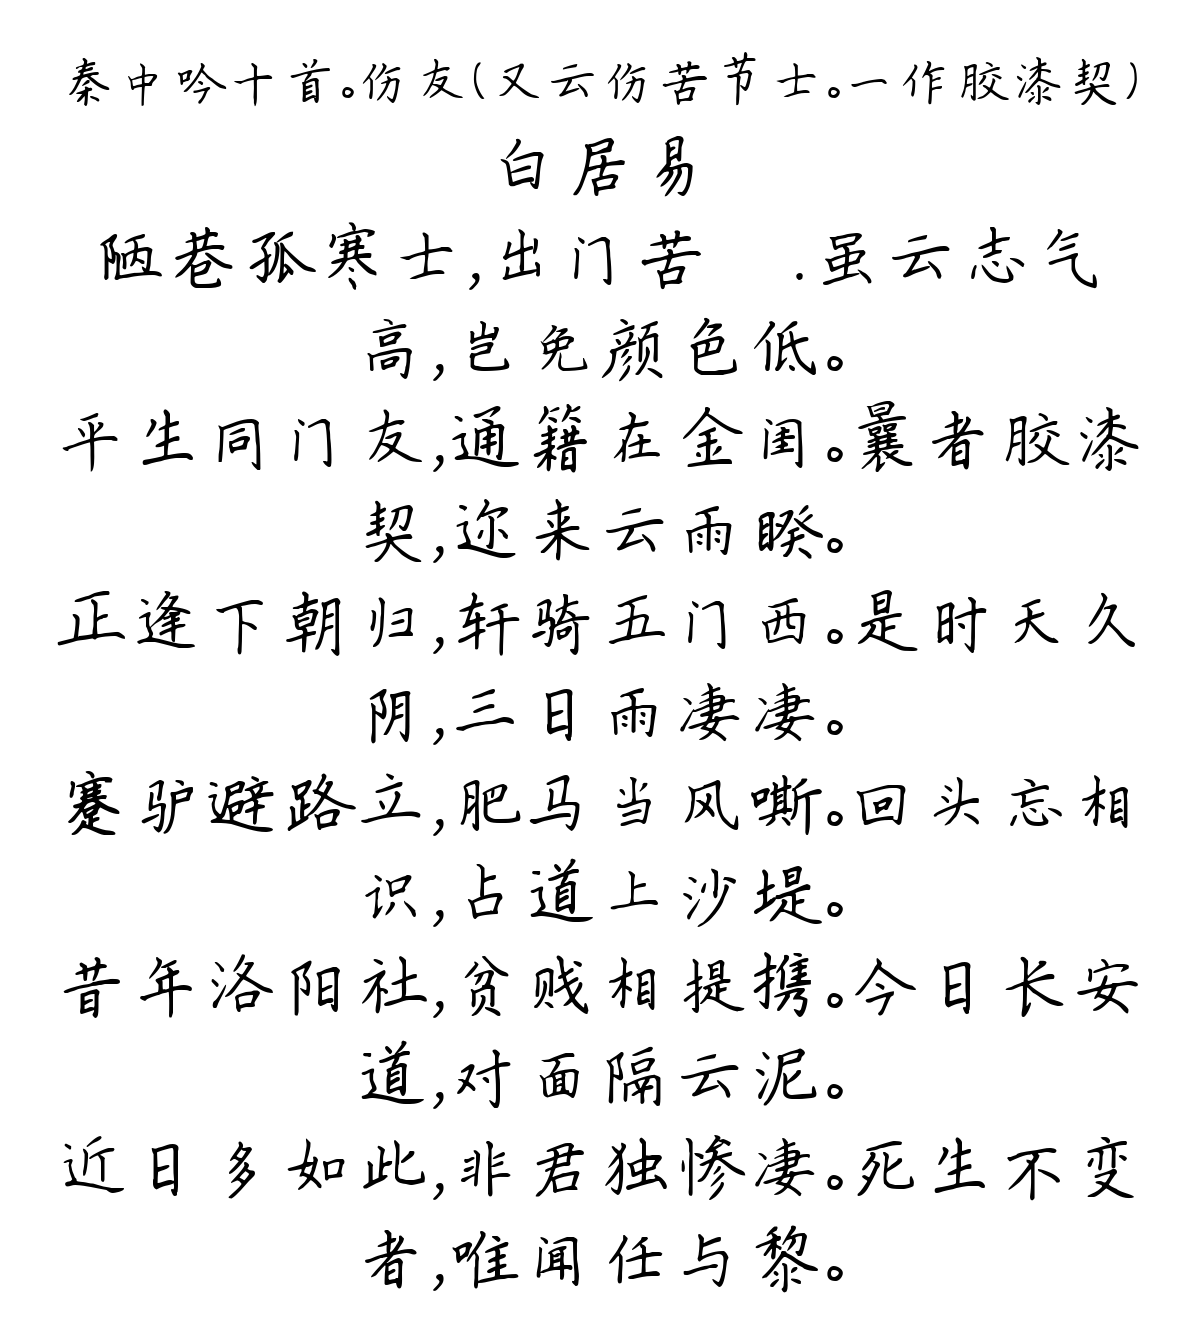 秦中吟十首。伤友(又云伤苦节士。一作胶漆契)
白居易
陋巷孤寒士,出门苦 .虽云志气
高,岂免颜色低。
平生同门友,通籍在金闺。曩者胶漆
契,迩来云雨睽。
正逢下朝归,轩骑五门西。是时天久
阴,三日雨凄凄。
蹇驴避路立,肥马当风嘶。回头忘相
识,占道上沙堤。
昔年洛阳社,贫贱相提携。今日长安
道,对面隔云泥。
近日多如此,非君独惨凄。死生不变
者,唯闻任与黎。